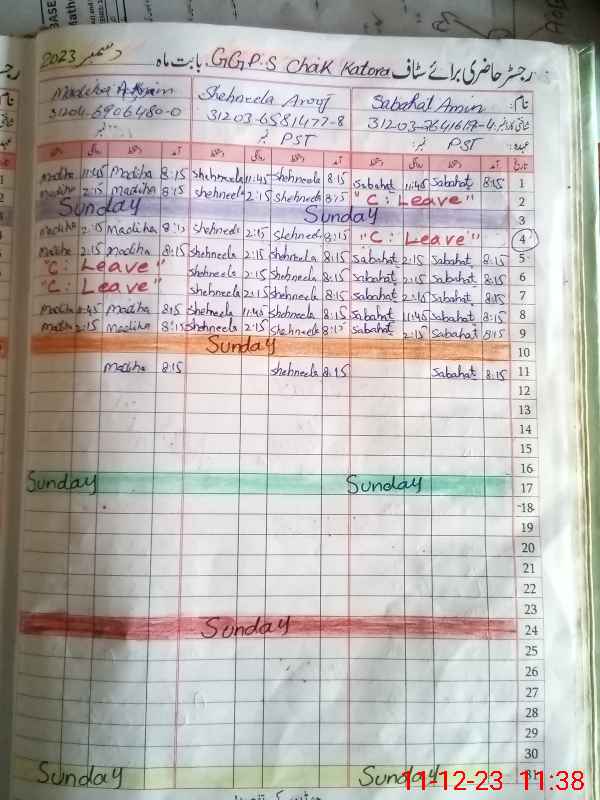 BASE
Math
رجسٹر حاضری برائے سٹاف G.G.P.S Chak Katora بابت ماہ دسمبر 2023
Madiha Shehneela Arooj Sabahat Amin نام:
31204-6906480-0 31203-6581477-8 31203-7641617-4
PST PST
Madiha 11:45 Madiha 8:15 Shehneela 11:45 Shehneela 8:15 Sabahat 11:45 Sabahat 8:15 1
Madiha 2:15 Madiha 8:15 Shehneela 2:15 Shehneela 8:15 "C: Leave" 2
Sunday Sunday 3
Madiha 2:15 Madiha 8:15 Shehneela 2:15 Shehneela 8:15 "C: Leave" 4
Madiha 2:15 Madiha 8:15 Shehneela 2:15 Shehneela 8:15 Sabahat 2:15 Sabahat 8:15 5
"C: Leave" Shehneela 2:15 Shehneela 8:15 Sabahat 2:15 Sabahat 8:15 6
"C: Leave" Shehneela 2:15 Shehneela 8:15 Sabahat 2:15 Sabahat 8:15 7
Madiha 11:45 Madiha 8:15 Shehneela 11:45 Shehneela 8:15 Sabahat 11:45 Sabahat 8:15 8
Madiha 2:15 Madiha 8:15 Shehneela 2:15 Shehneela 8:15 Sabahat 2:15 Sabahat 8:15 9
Sunday 10
Madiha 8:15 Shehneela 8:15 Sabahat 8:15 11
12
13
14
15
16
Sunday Sunday 17
18
19
20
21
22
23
Sunday 24
25
26
27
28
29
30
Sunday Sunday 31
11-12-23 11:38